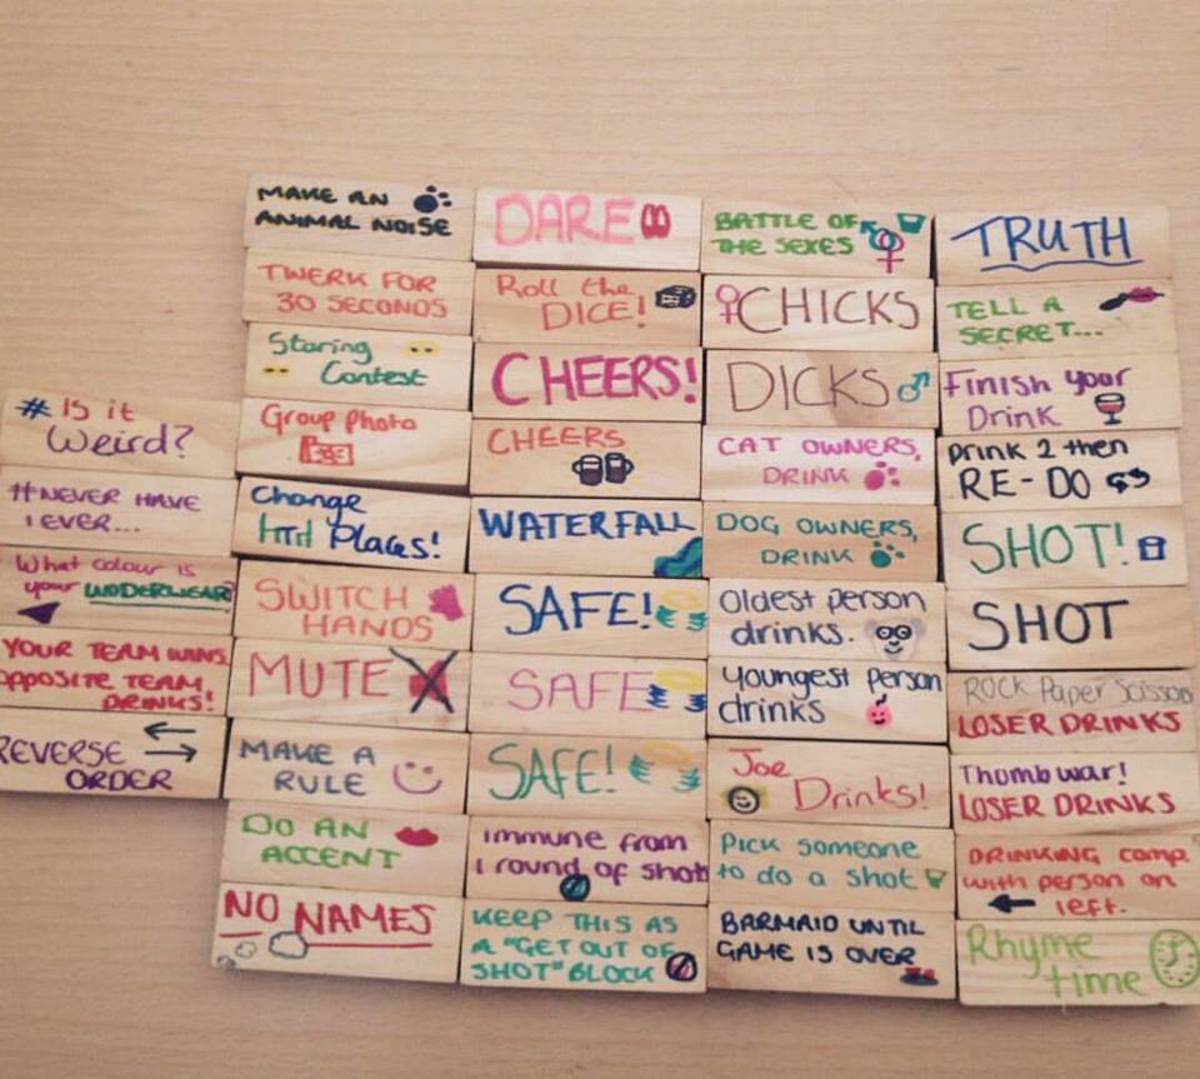 # Is it
Weird?
#NEVER HAVE
I EVER...
What colour is
your UNDERWEAR?
YOUR TEAM WINS
OPPOSITE TEAM
DRINKS!
REVERSE
ORDER
MAKE AN
ANIMAL NOISE
TWERK FOR
30 SECONDS
Staring
Contest
Group Photo
Change
Places!
SWITCH
HANDS
MUTE
MAKE A
RULE
DO AN
ACCENT
NO NAMES
DARE
Roll the
DICE!
CHEERS!
CHEERS
WATERFALL
SAFE!
SAFE
SAFE!
Immune from
1 round of shots
KEEP THIS AS
A "GET OUT OF
SHOT" BLOCK
BATTLE OF
THE SEXES
CHICKS
DICKS
CAT OWNERS,
DRINK
DOG OWNERS,
DRINK
Oldest person
drinks.
Youngest person
drinks
Joe
Drinks!
Pick someone
to do a shot
BARMAID UNTIL
GAME IS OVER
TRUTH
TELL A
SECRET...
Finish your
Drink
Drink 2 then
RE-DO
SHOT!
SHOT
ROCK Paper Scissors
LOSER DRINKS
Thumb war!
LOSER DRINKS
DRINKING comp.
with person on
left.
Rhyme
time